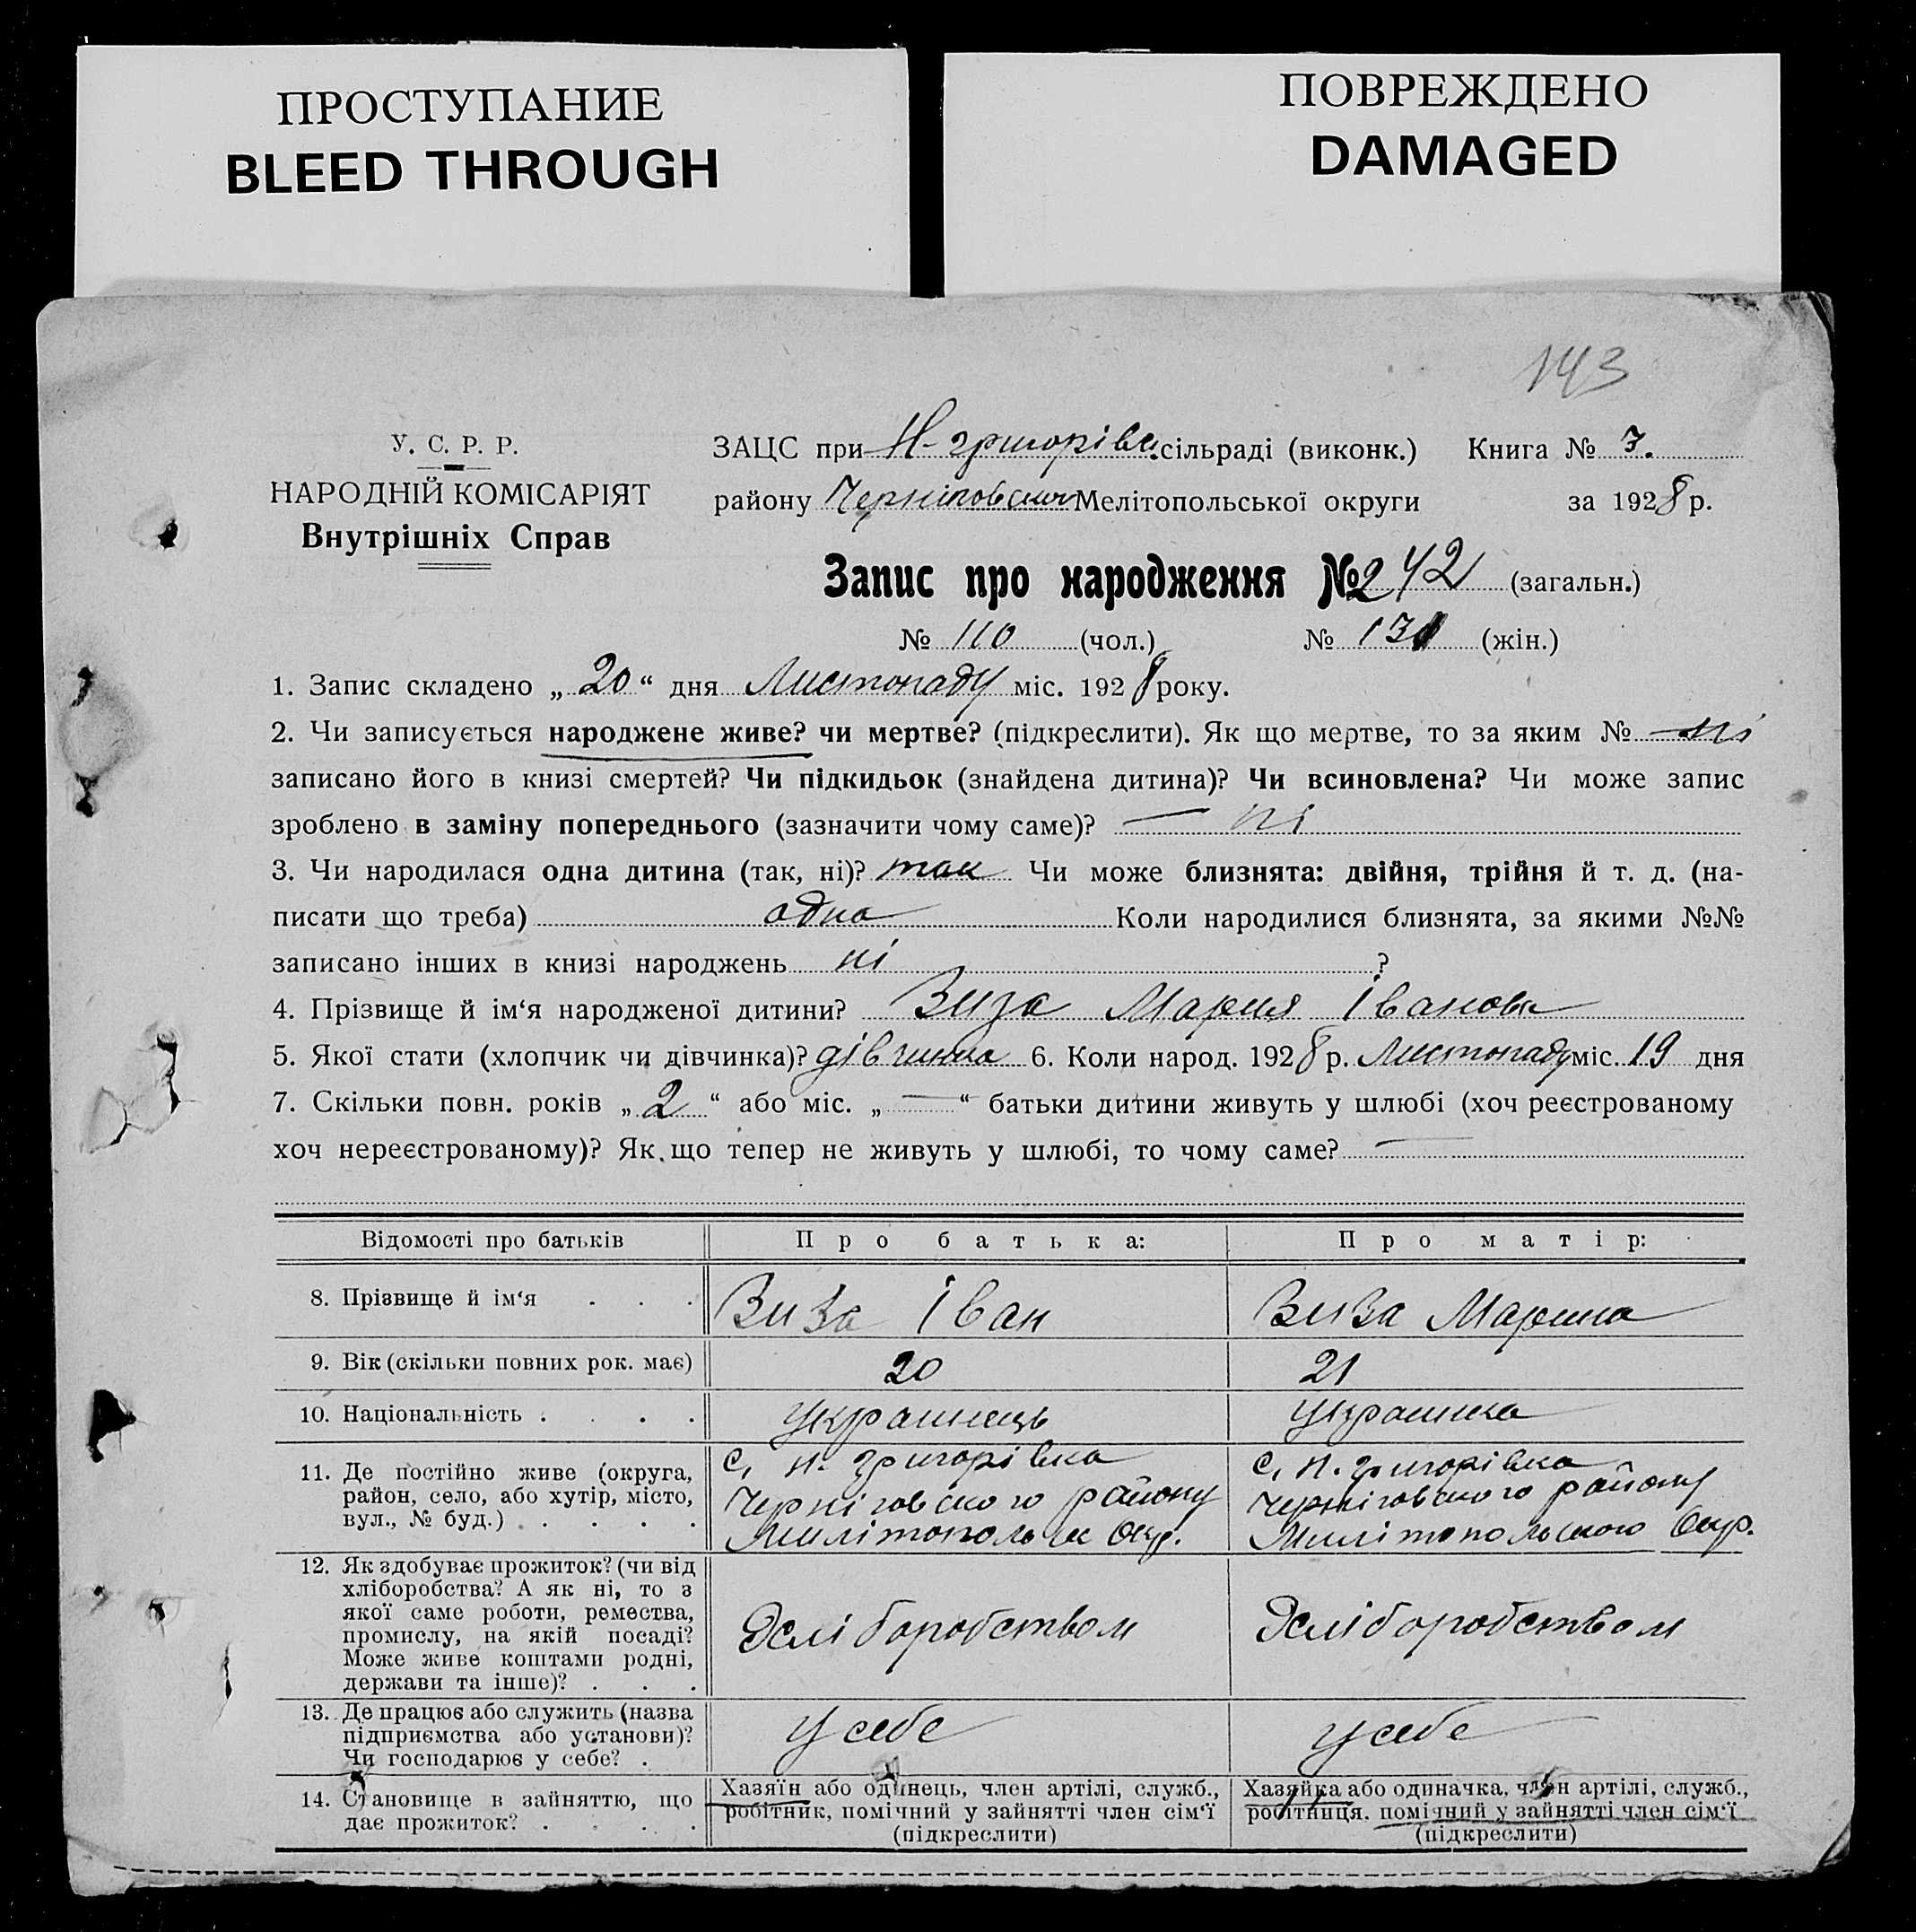 ПРОСТУПАНИЕ
BLEED THROUGH
ПОВРЕЖДЕНО
DAMAGED
143
У. С. Р. Р.
НАРОДНІЙ КОМІСАРІЯТ
Внутрішніх Справ
ЗАЦС при Н-григорівс. сільраді (виконк.) Книга № 3.
району Мелітопольської округи за 1928 р.
Запис про народження № 242 (загальн.)
№ 110 (чол.) № 131 (жін.)
1. Запис складено „20“ дня Листопаду міс. 1928 року.
2. Чи записується народжене живе? чи мертве? (підкреслити). Як що мертве, то за яким № — ні
записано його в книзі смертей? Чи підкидьок (знайдена дитина)? Чи всиновлена? Чи може запис
зроблено в заміну попереднього (зазначити чому саме)? — ні
3. Чи народилася одна дитина (так, ні)? так Чи може близнята: двійня, трійня й т. д. (на-
писати що треба) одна Коли народилися близнята, за якими №№
записано інших в книзі народжень ні ?
4. Прізвище й ім‘я народженої дитини? Виза Мария Іванова
5. Якої стати (хлопчик чи дівчинка)? дівчина 6. Коли народ. 1928 р. Листопаду міс. 19 дня
7. Скільки повн. років „2“ або міс. „—“ батьки дитини живуть у шлюбі (хоч реєстрованому
хоч нереєстрованому)? Як що тепер не живуть у шлюбі, то чому саме? —
Відомості про батьків Про батька: Про матір:
8. Прізвище й ім‘я . . . Виза Іван Виза Марина
9. Вік (скільки повних рок. має) 20 21
10. Національність . . . . Українець Українка
11. Де постійно живе (округа,
район, село, або хутір, місто,
вул., № буд.) . . . . .
с. Н. григорівка
Черніговского району
Милітопольск Окр.
с. Н. григорівка
Черніговского району
Милітопольского Окр.
12. Як здобуває прожиток? (чи від
хліборобства? А як ні, то з
якої саме роботи, ремества,
промислу, на якій посаді?
Може живе коштами родні,
держави та інше)? . . .
Хліборобством Хліборобством
13. Де працює або служить (назва
підприємства або установи)?
Чи господарює у себе? .
У себе у себе
14. Становище в зайняттю, що
дає прожиток? . . . .
Хазяїн або одинець, член артілі, служб.,
робітник, помічний у зайнятті член сім‘ї
(підкреслити)
Хазяйка або одиначка, член артілі, служб.,
робітниця, помічний у зайнятті член сім‘ї
(підкреслити)